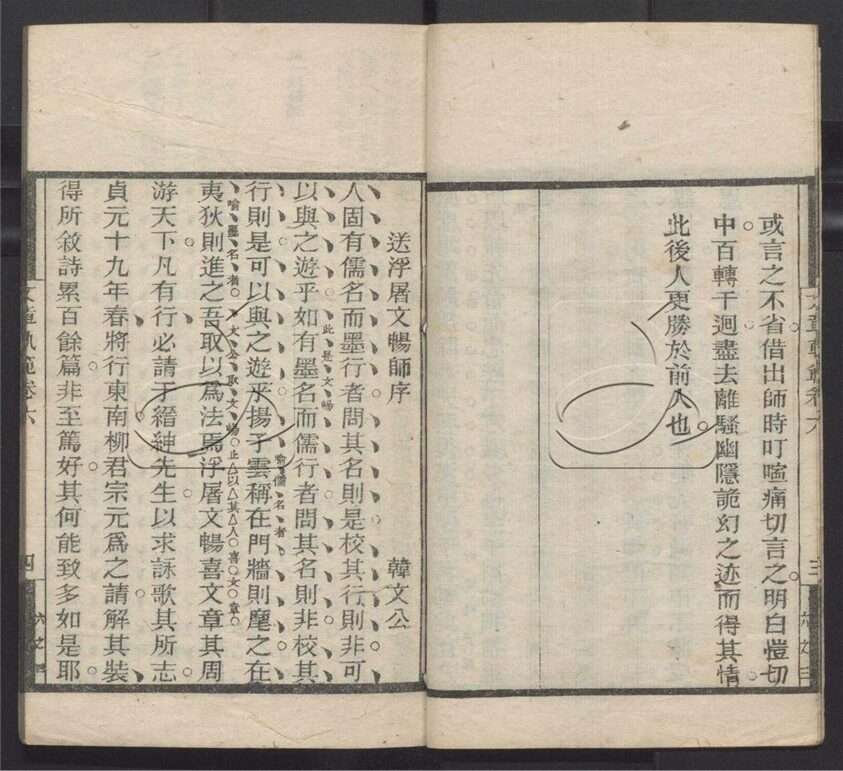 或言之不省借出師時叮嚀痛切言之明白愷切
中百轉千迴盡去離騷幽隱詭幻之迹而得其情
此後人更勝於前人也
文章軌範卷六
三
六之三
送浮屠文暢師序
韓文公
人固有儒名而墨行者問其名則是校其行則非可
以與之遊乎如有墨名而儒行者問其名則非校其
此是文暢
行則是可以與之遊乎揚子雲稱在門牆則麾之在
喻儒名者
夷狄則進之吾取以爲法焉浮屠文暢喜文章其周
喻墨名者
文公取文暢止以其人喜文章
游天下凡有行必請于縉紳先生以求詠歌其所志
貞元十九年春將行東南柳君宗元爲之請解其裝
得所敘詩累百餘篇非至篤好其何能致多如是耶
文章軌範卷六
四
六之四